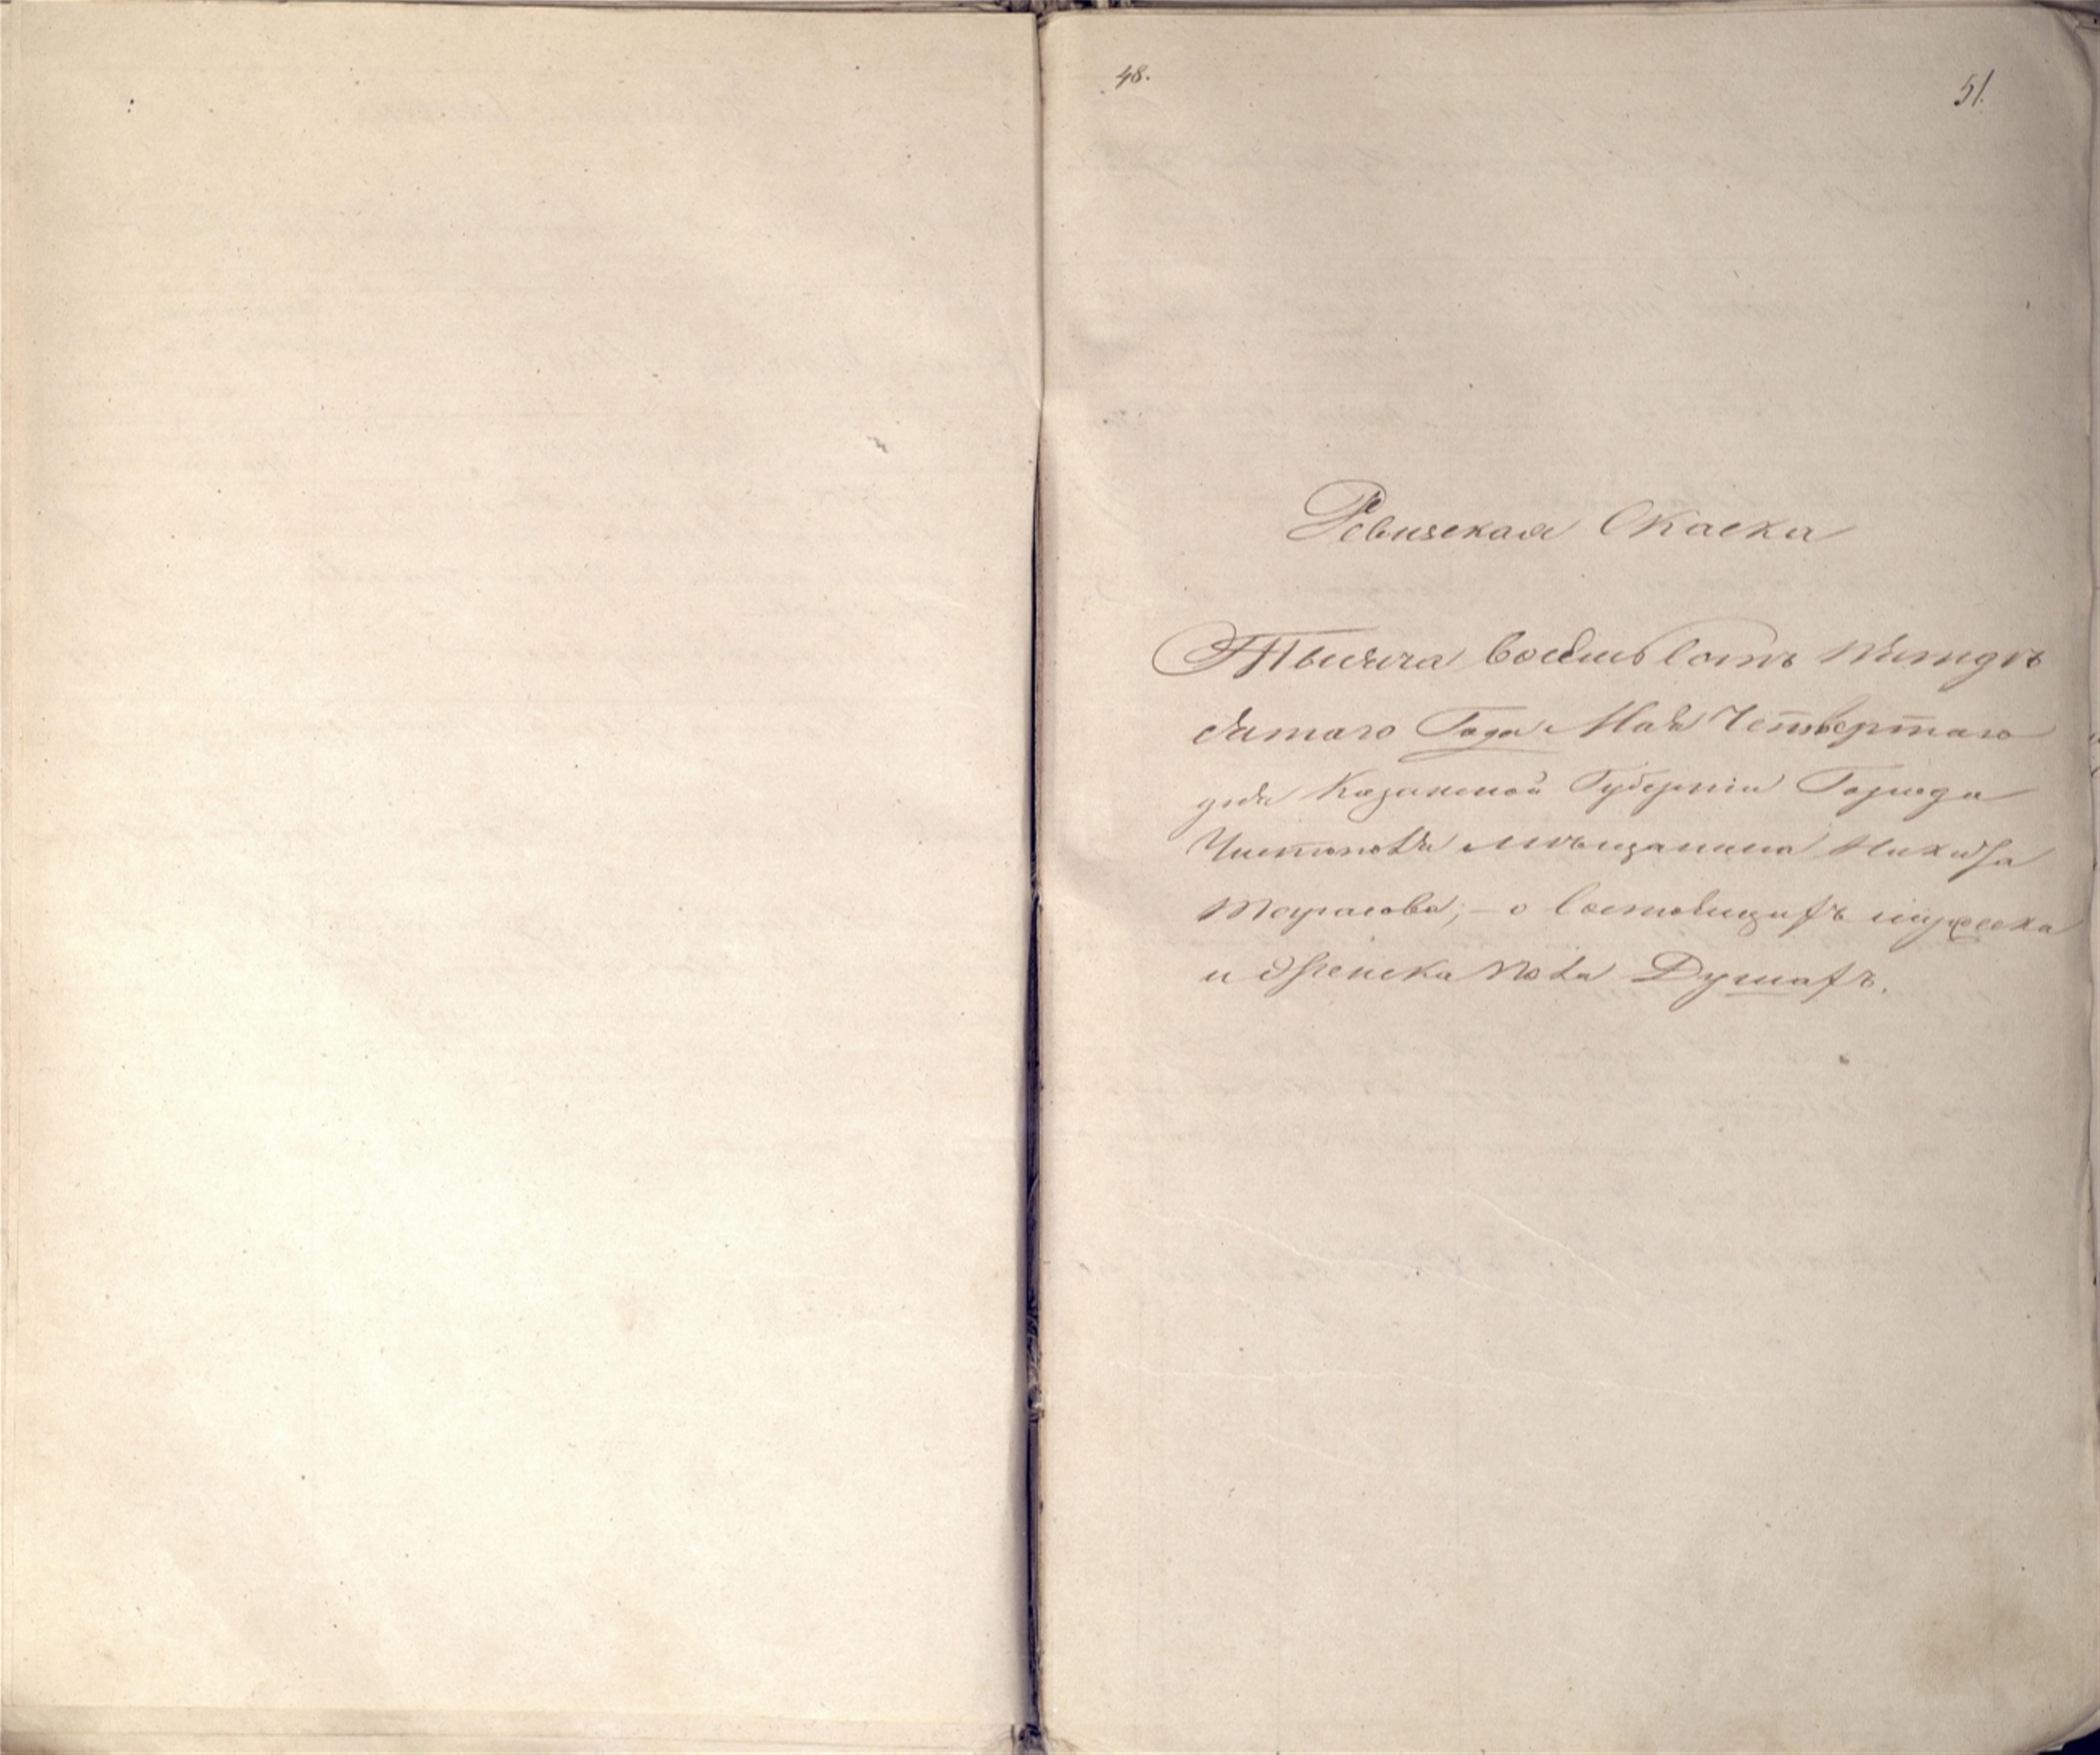 48.
51.
Ревизская Скаска
Тысяча восемьсотъ пятдѣ
сятаго Года Мая Четвертаго
дня Казанской Губерніи Города
Чистополя мѣщанина
Тарасова, – о состоящихъ мужеска
и женска пола Душахъ.